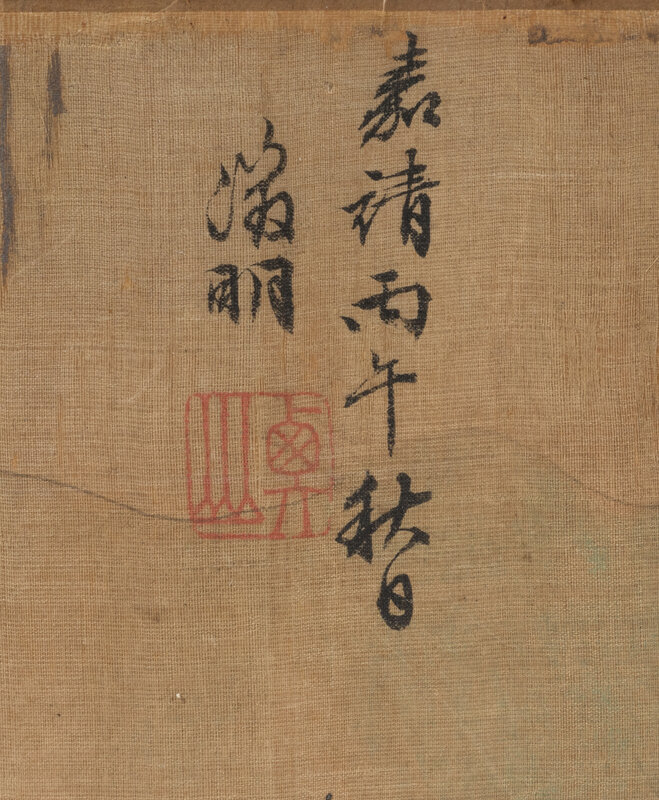 嘉靖丙午秋日
徵明
衡山